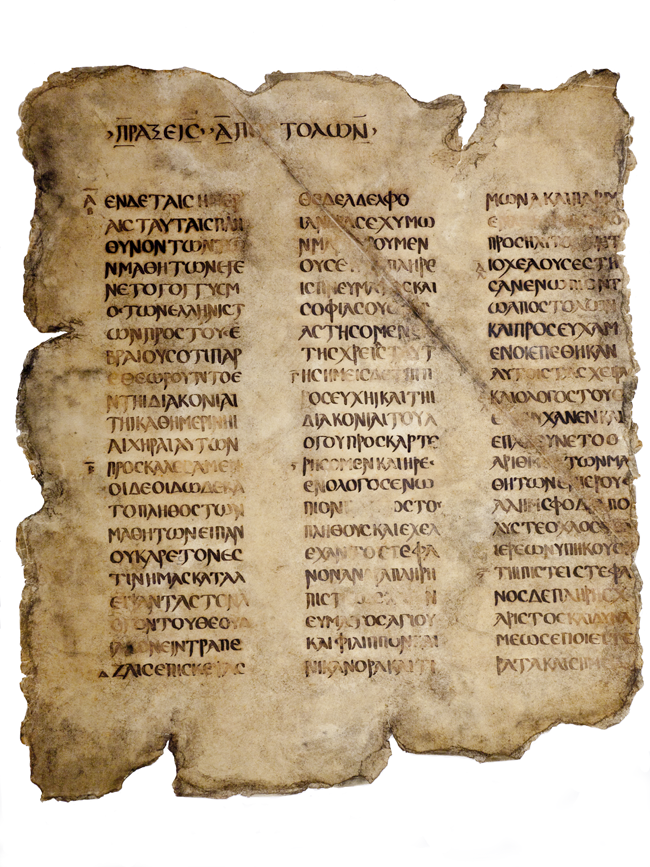 ΠΡΑΞΕΙϹ ΑΠ ΤΟΛΩΝ
ΕΝΔΕΤΑΙϹΗΜΕΡ
ΑΙϹΤΑΥΤΑΙϹΠΛΗ
ΘΥΝΟΝΤΩΝΤΩ
ΝΜΑΘΗΤΩΝΕΓΕ
ΝΕΤΟΓΟΓΓΥϹΜ
ΟϹΤΩΝΕΛΛΗΝΙϹΤ
ΩΝΠΡΟϹΤΟΥϹΕ
ΒΡΑΙΟΥϹΟΤΙΠΑΡ
ΕΘΕΩΡΟΥΝΤΟΕ
ΝΤΗΙΔΙΑΚΟΝΙΑΙ
ΤΗΙΚΑΘΗΜΕΡΙΝΗΙ
ΑΙΧΗΡΑΙΑΥΤΩΝ
ΠΡΟϹΚΑΛΕϹΑΜΕΝ
ΟΙΔΕΟΙΔΩΔΕΚΑ
ΤΟΠΛΗΘΟϹΤΩΝ
ΜΑΘΗΤΩΝΕΙΠΑΝ
ΟΥΚΑΡΕϹΤΟΝΕϹ
ΤΙΝΗΜΑϹΚΑΤΑΛ
ΕΙΨΑΝΤΑϹΤΟΝΛ
ΟΓΟΝΤΟΥΘΕΟΥΔ
ΙΑΚΟΝΕΙΝΤΡΑΠΕ
ΖΑΙϹΕΠΙϹΚΕΨΑϹ
ΘΕΔΕΑΔΕΛΦΟ
ΙΑΝΔΡΑϹΕΞΥΜΩ
ΝΜΑ ΡΟΥΜΕΝ
ΟΥϹΕ ΠΛΗΡΕ
ΙϹΠΝΕΥΜΑΤΟϹΚΑΙ
ϹΟΦΙΑϹΟΥϹ
ΑϹΤΗϹΟΜΕΝ
ΤΗϹΧΡΕΙΑϹΤΑΥΤ
ΗϹΗΜΕΙϹΔΕΤΗΙΠ
ΡΟϹΕΥΧΗΙΚΑΙΤΗΙ
ΔΙΑΚΟΝΙΑΙΤΟΥΛ
ΟΓΟΥΠΡΟϹΚΑΡΤΕ
ΡΗϹΟΜΕΝΚΑΙΗΡΕϹ
ΕΝΟΛΟΓΟϹΕΝΩ
ΠΙΟΝ ΟϹΤΟΥ
ΠΛΗΘΟΥϹΚΑΙΕΞΕΛ
ΕΞΑΝΤΟϹΤΕΦΑ
ΝΟΝΑΝ ΑΠΛΗΡΗ
ΠΙϹΤ Ν
ΕΥΜΑΤΟϹΑΓΙΟΥ
ΚΑΙΦΙΛΙΠΠΟΝΚΑΙ
ΝΙΚΑΝΟΡΑΚΑΙΤΙ
ΜΩΝΑΚΑΙΠΑΡΜ
Ε
ΠΡΟϹΗΛΥΤΟΝΑΝΤ
ΙΟΧΕΑΟΥϹΕϹΤΗ
ϹΑΝΕΝΩΠΙΟΝΤ
ΩΝΑΠΟϹΤΟΛΩΝ
ΚΑΙΠΡΟϹΕΥΞΑΜ
ΕΝΟΙΕΠΕΘΗΚΑΝ
ΑΥΤΟΙϹΤΑϹΧΕΙΡΑ
ΚΑΙΟΛΟΓΟϹΤΟΥΘ
Ε ΥΞΑΝΕΝΚΑΙ
ΕΠΛΗΘΥΝΕΤΟΟ
ΑΡΙΘΜ ΤΩΝΜΑ
ΘΗΤΩΝΕΝΙΕΡΟΥϹ
ΑΛΗΜϹΦΟΔΡΑΠΟ
ΛΥϹΤΕΟΧΛΟϹ
ΙΕΡΕΩΝΥΠΗΚΟΥΟ
ΤΗΙΠΙϹΤΕΙϹΤΕΦΑ
ΝΟϹΔΕΠΛΗΡΗϹΧ
ΑΡΙΤΟϹΚΑΙΔΥΝΑ
ΜΕΩϹΕΠΟΙΕΙΤΕ
ΡΑΤΑΚΑΙϹΗΜΕ